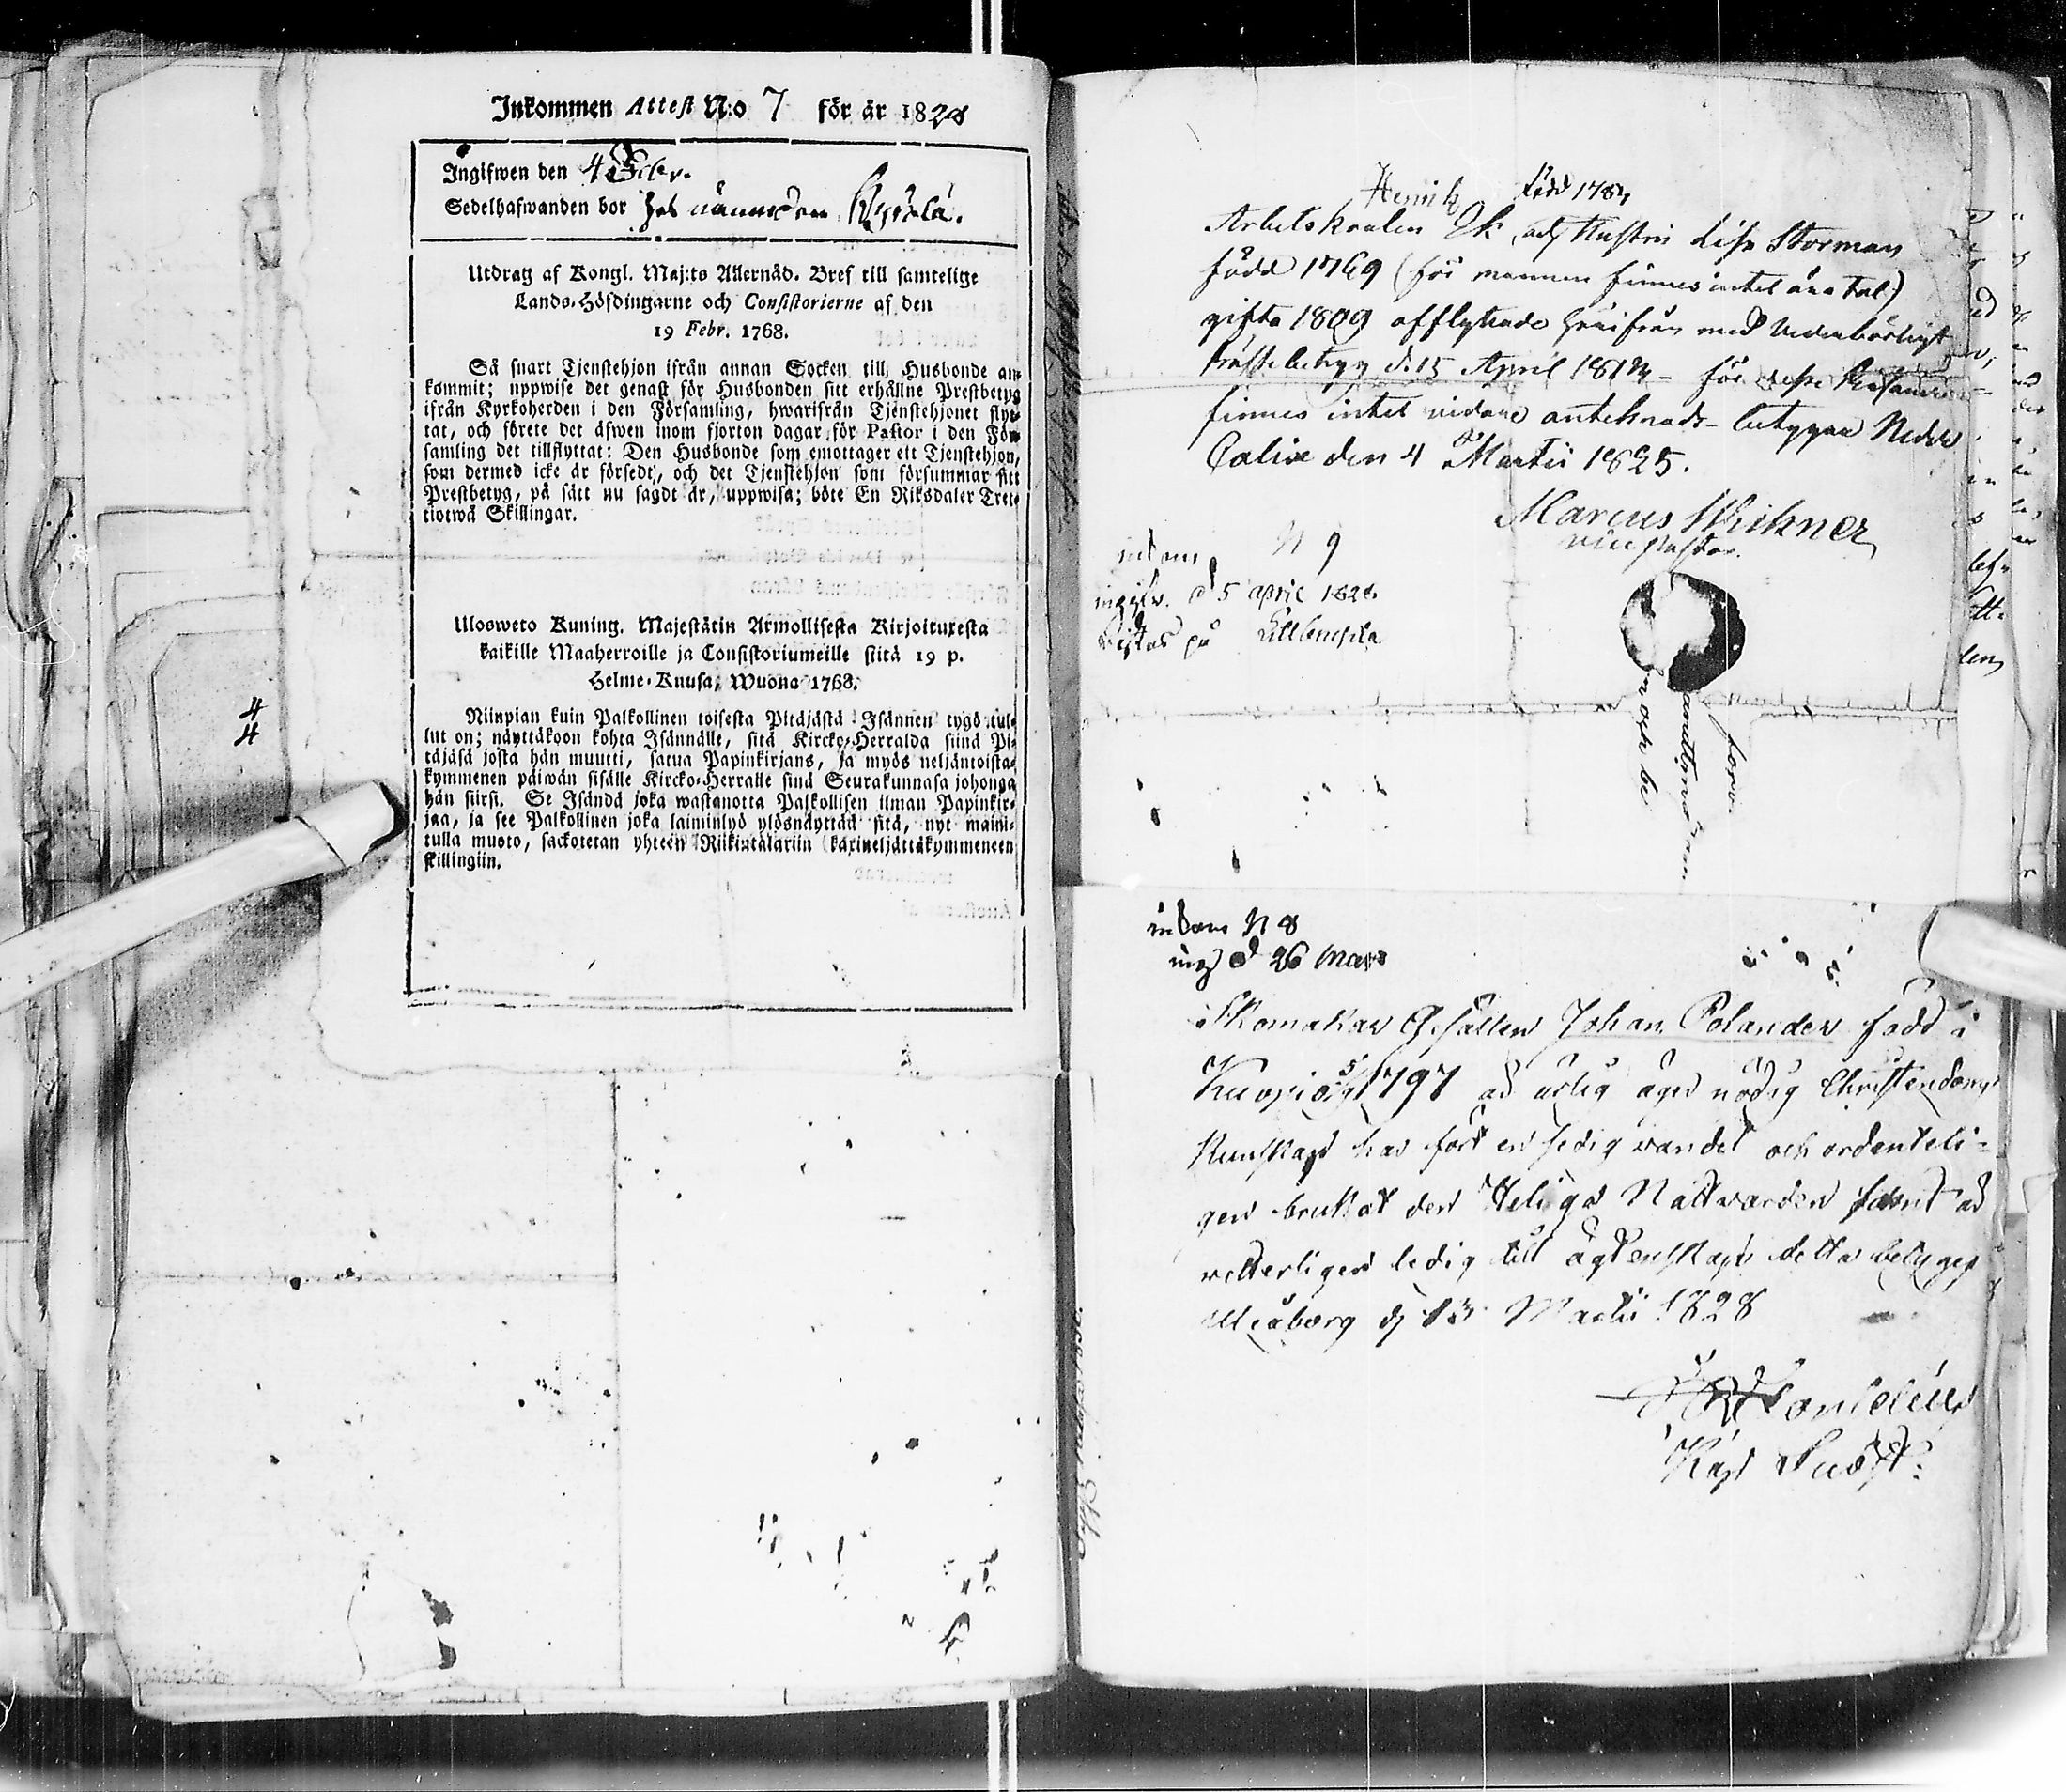 Inkommen Attest N:o 7 för år 1828
Ingifwen den 4 Febr.
Sedelhafwanden bor hos
Utdrag af Kongl. Maj:ts Allernåd. Bref till samtelige
Lands-Höfdingarne och Consistorierne af den
19 Febr. 1768.
Så snart Tjenstehjon ifrån annan Socken till Husbonde an-
kommit; uppwise det genast för Husbonden sitt erhållne Prestbetyg
ifrån Kyrkoherden i den Församling, hwarifrån Tjenstehjonet flyt-
tat, och förete det äfwen inom fjorton dagar för Pastor i den För-
samling det tillflyttat: Den Husbonde som emottager ett Tjenstehjon,
som dermed icke är försedt, och det Tjenstehjon som försummar sitt
Prestbetyg, på sätt nu sagdt är, uppwisa; böte En Riksdaler Tret-
tiotwå Skillingar.
Ulosweto Kuning. Majestätin Armollisesta Kirjoituxesta
kaikille Maaherroille ja Consistoriumeille siitä 19 p.
Helme-Kuusa, Wuona 1768.
Niinpian kuin Palkollinen toisesta Pitäjästä Isännen tygö tul-
lut on; näyttäkoon kohta Isännälle, sitä Kircko-Herralda siinä Pi-
täjäsä josta hän muutti, saatua Papinkirjans, ja myös neljäntoista-
kymmenen päiwän sisälle Kircko-Herralle sinä Seurakunnasa johonga
hän siirsi. Se Isändä joka wastanotta Palkollisen ilman Papinkir-
jaa, ja see Palkollinen joka laiminlyö ylösnäyttää sitä, nyt maini-
tulla muoto, sackotetan yhteen Riikintalariin kaxineljättäkymmeneen
skillingiin.
4
4
Henrik född 1784
Arbetskarlen Ek, och Hustrun Lisa Storman
född 1769 (för mannen finnes intet åra tal)
gifta 1809 afflyttade härifrån med vederbörligt
Prästebetyg d. 15 April
finnes intet vidare antecknadt betygar Neder
Calix den 4 Martii 1825.
Marcus Wikner
vice pastor.
inkom N 9
ingifv. d 5 april 1828
vistas på
inkom N 8
ing d 26 Mars
Skomakar Gesällen Johan Polander född i
Kuopio 1797 är ärlig äger nödig Christendoms
Kunskap har fört en sedig vandel och ordenteli-
gen brukat den Heliga Nattvarden samt är
vetterligen ledig till ägtenskap detta betyges
Uleåborg d 13 Martii 1828